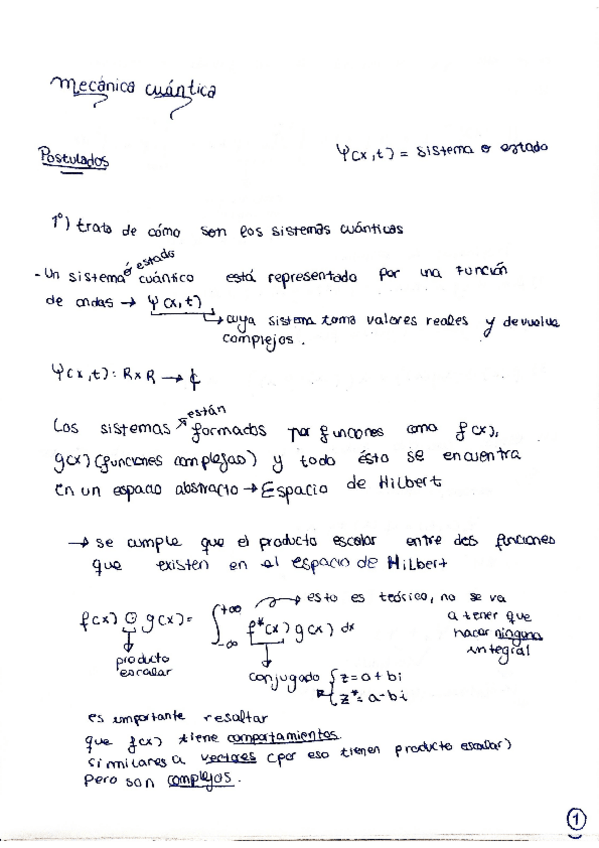 Mecánica cuántica
Postulados
Ψ(x,t) = sistema o estado
1º) trata de cómo son los sistemas cuánticos
- Un sistema o estado cuántico está representado por una función
de ondas → Ψ(x,t)
→ cuya sistema toma valores reales y devuelve
complejos.
Ψ(x,t): R x R → ¢
Los sistemas están formados por funciones como f(x),
g(x) (funciones complejas) y todo ésto se encuentra
en un espacio abstracto → Espacio de Hilbert
→ se cumple que el producto escalar entre dos funciones
que existen en el espacio de Hilbert
f(x) ⊙ g(x) = ∫_{-∞}^{+∞} f*(x) g(x) dx
→ esto es teórico, no se va
a tener que
hacer ninguna
integral
producto
escalar
conjugado { z = a + bi
z* = a - bi
es importante resaltar
que f(x) tiene comportamientos
similares a vectores (por eso tienen producto escalar)
pero son complejos.
1